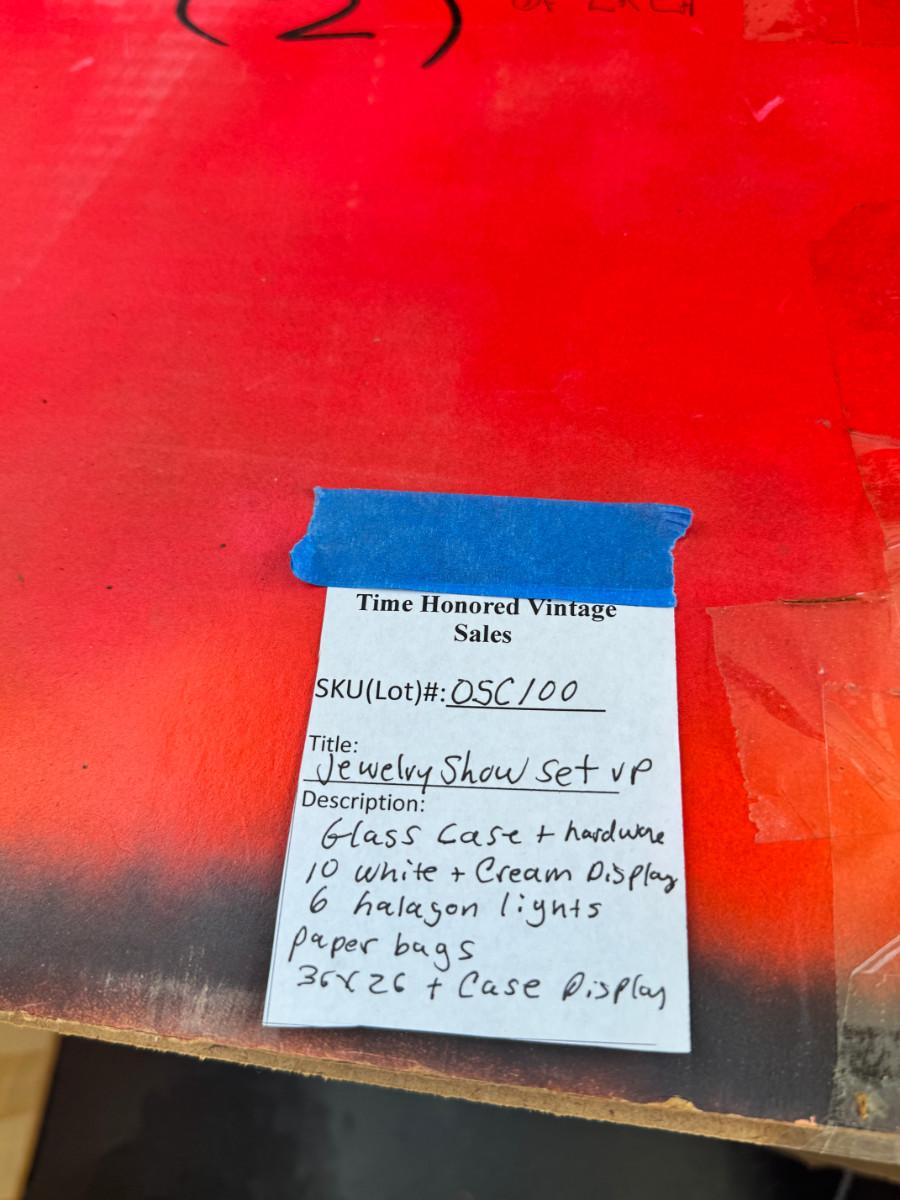 (2) OF EACH
Time Honored Vintage
Sales
SKU(Lot)#: OSC100
Title:
Jewelry Show set up
Description:
Glass Case + hardware
10 white + Cream Display
6 halagon lights
paper bags
36x26 + Case Display